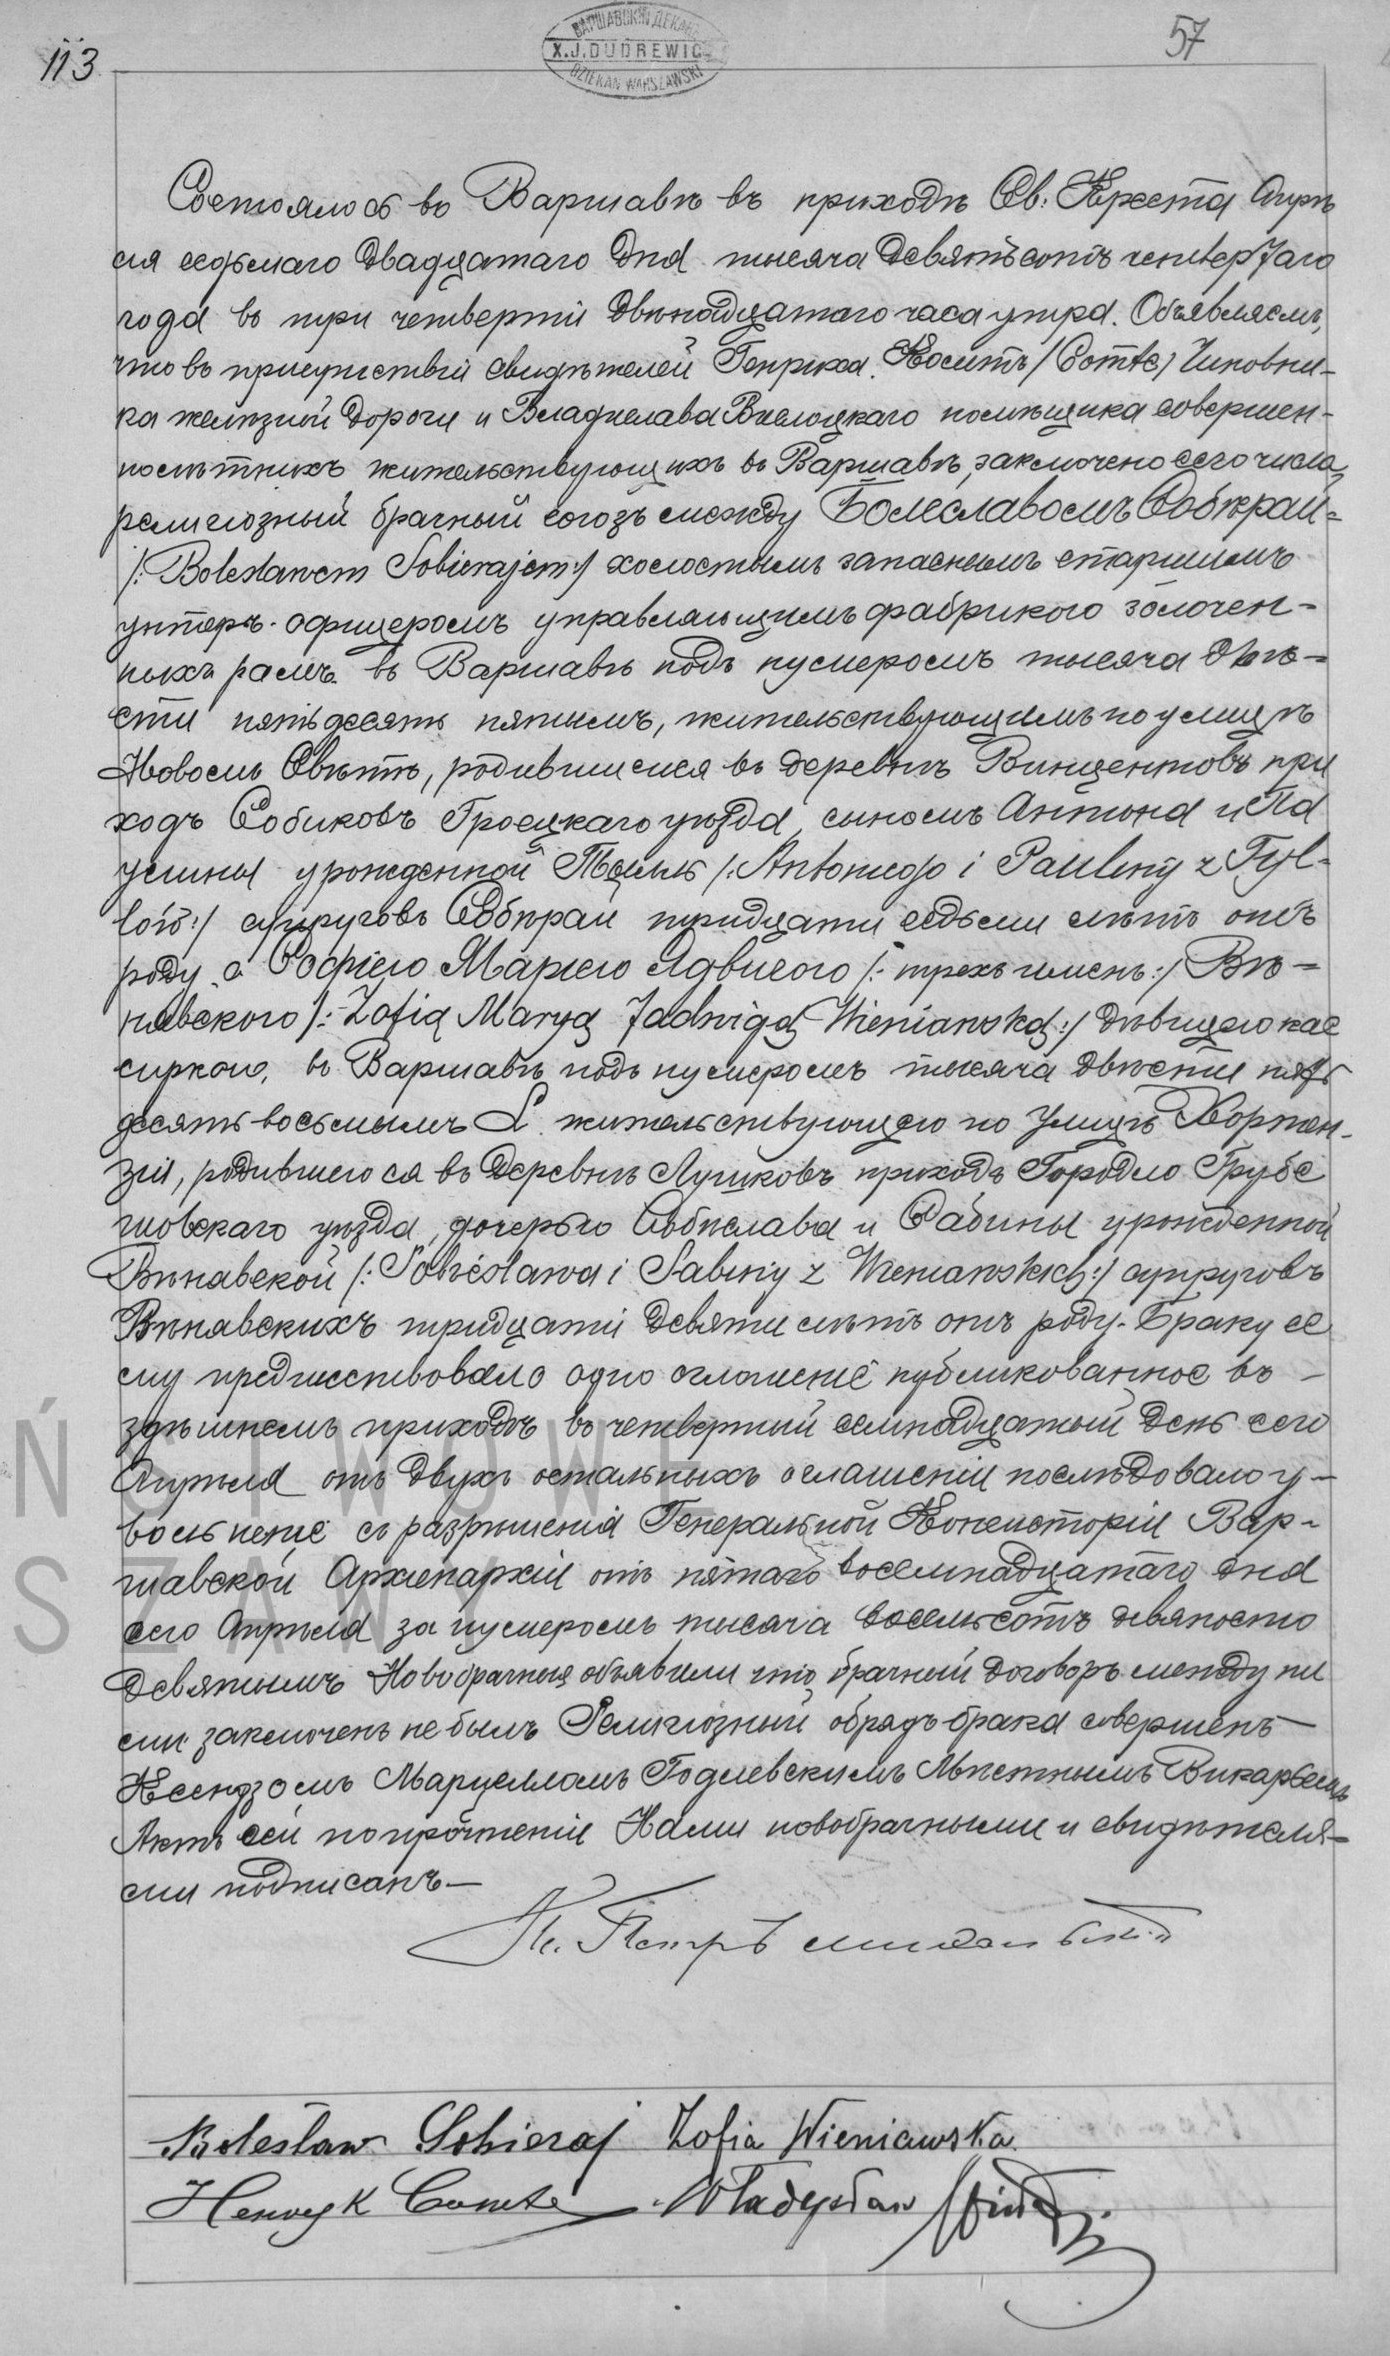 113
ВАРШАВСКІЙ ДЕКАНЪ
X.J.DUDREWICZ
DZIEKAN WARSZAWSKI
57
Состоялось въ Варшавѣ въ приходѣ Св. Креста Апрѣ
ля седьмаго двадцатаго дня тысяча девятьсотъ четвертаго
года въ три четверти двѣнадцатаго часа утра. Объявляемъ,
что въ присутствіи свидѣтелей Генриха Косетъ /Comte/ Чиновни-
ка желѣзной дороги и Владислава помѣщика совершен-
нолѣтнихъ жительствующихъ въ Варшавѣ, заключено сего числа
религіозный брачный союзъ между Болеславомъ Собѣрай-
/:Bolesławem Sobierajem:/ холостымъ запаснымъ старшимъ
унтеръ-офицеромъ управляющимъ фабрикою золочен-
ныхъ рамъ въ Варшавѣ подъ нумеромъ тысяча двѣ-
сти пятьдесятъ пятымъ, жительствующимъ по улицѣ
Новомъ Свѣтѣ, родившимся въ деревнѣ Винцентовъ при
ходѣ Собиковъ Гроецкаго уѣзда, сыномъ Антона и Па
улины урожденной /:Antoniego i Pauliny z Tyl-
lów:/ супруговъ Собѣрай тридцати седьми лѣтъ отъ
роду, а Софіею Маріею Ядвигою /:трехъ именъ:/ Вѣ-
нявскою /:Zofią Maryą Jadwigą Wieniawską:/ дѣвицею кас
сиркою, въ Варшавѣ подъ нумеромъ тысяча двѣсти пять
десятъ восьмымъ L. жительствующею по улицѣ Хортен-
зіи, родившеюся въ деревнѣ Лушковъ приходѣ Городло Грубе
шовскаго уѣзда, дочерью Собѣслава и Сабины урожденной
Вѣнявской /:Sobiesława i Sabiny z Wieniawskich:/ супруговъ
Вѣнявскихъ тридцати девяти лѣтъ отъ роду. Браку се
му предшествовало одно оглашеніе публикованное въ
здѣшнемъ приходѣ въ четвертый семнадцатый день сего
Апрѣля отъ двухъ остальныхъ оглашеній послѣдовало у-
вольненіе съ разрѣшенія Генеральной Консисторіи Вар-
шавской Архіепархіи отъ пятаго восемнадцатаго дня
сего Апрѣля за нумеромъ тысяча восемьсотъ девяносто
девятымъ Новобрачные объявили что брачный договоръ между ни
ми заключенъ не былъ Религіозный обрядъ брака совершенъ
Ксендзомъ Марцелломъ Годлевскимъ Мѣстнымъ Викаріемъ
Актъ сей по прочтеніи Нами новобрачными и свидѣтеля-
ми подписанъ-
Кс. Петръ
Bolesław Sobieraj Zofia Wieniawska
Henryk Comte Władysław
ŃSTWOWE
SZAWY